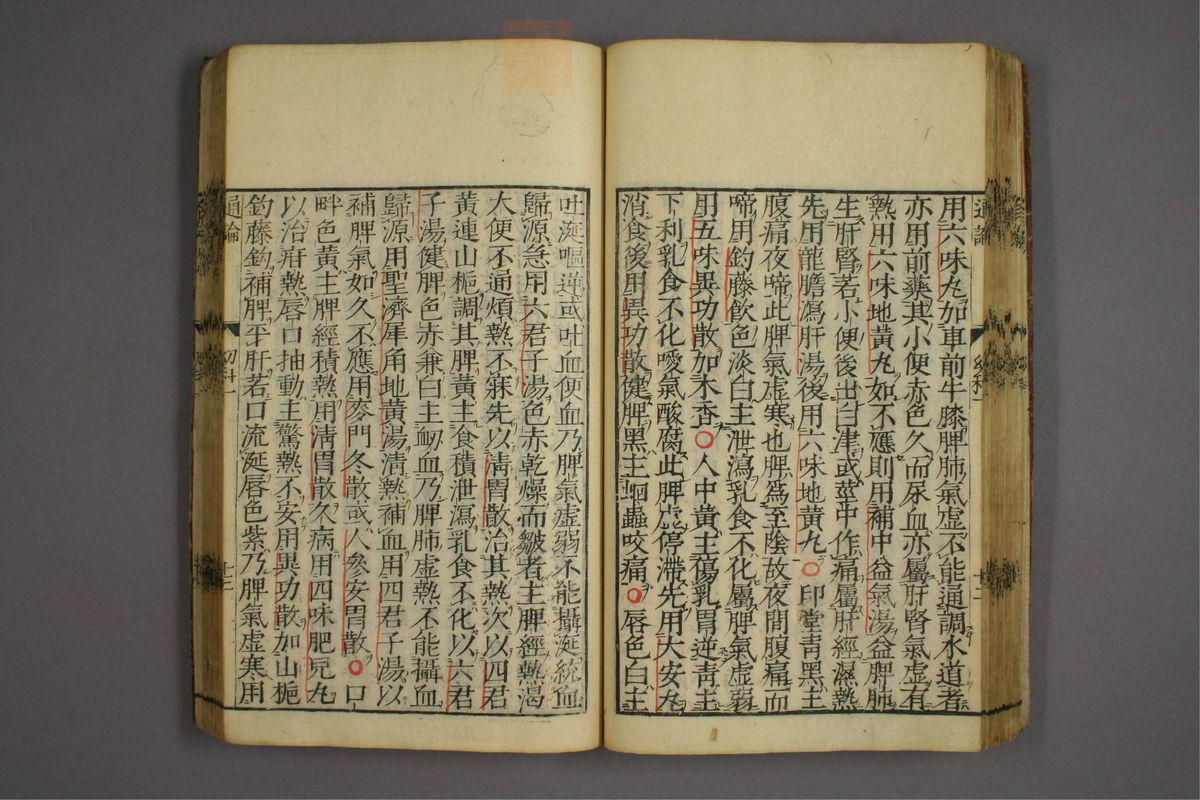 用六味丸加車前牛膝脾肺氣虚不能通調水道者
亦用前藥其小便赤色久而尿血亦屬肝腎氣虚有
熱用六味地黃丸如不應則用補中益氣湯益脾肺
生肝腎若小便後出白津或莖中作痛屬肝經濕熱
先用龍膽瀉肝湯後用六味地黃丸○印堂青黑主
腹痛夜啼此脾氣虚寒也脾爲至陰故夜間腹痛而
啼用釣藤飲色淡白主泄瀉乳食不化屬脾氣虚弱
用五味異功散加木香○人中黃主傷乳胃逆青主
下利乳食不化噯氣酸腐此脾虚停滯先用大安丸
消食後用異功散健脾黑主蛔蟲咬痛○唇色白主
吐涎嘔逆或吐血便血乃脾氣虚弱不能攝涎統血
歸源急用六君子湯色赤乾燥而皺者主脾經熱渴
大便不通煩熱不寐先以清胃散治其熱次以四君
黃連山梔調其脾黃主食積泄瀉乳食不化以六君
子湯健脾色赤兼白主衂血乃脾肺虚熱不能攝血
歸源用聖濟犀角地黃湯清熱補血用四君子湯以
補脾氣如久不應用麥門冬散或人參安胃散○口
畔色黃主脾經積熱用清胃散久病用四味肥兒丸
以治疳熱唇口抽動主驚熱不安用異功散加山梔
釣藤鈎補脾平肝若口流涎唇色紫乃脾氣虚寒用
通論
幼科一
十三